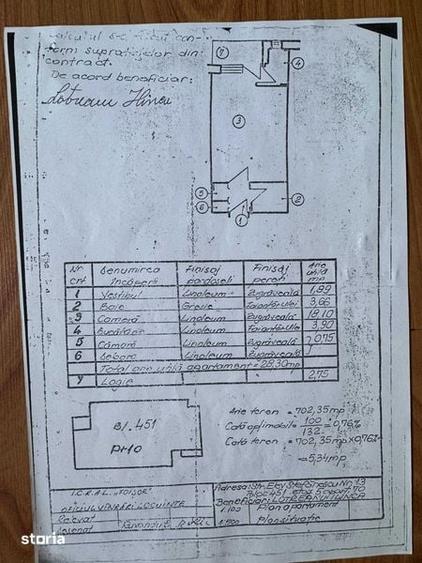 Calculul s-a făcut con-
form suprafețelor din
contract.
De acord beneficiar:
7
4
3
5
6
1
2
Nr. crt. Denumirea încăperii Finisaj pardoseli Finisaj pereți Arie utilă mp
1 Vestibul Linoleum Zugrăveală 1,89
2 Baie Gresie Faianță+ulei 3,66
3 Cameră Linoleum Zugrăveală 18,10
4 Bucătărie Linoleum Faianță+ulei 3,90
5 Cămară Linoleum Zugrăveală 0,75
6 Debara Linoleum Zugrăveală
Total arie utilă apartament = 28,30 mp
7 Logie 2,75
Bl. 451
P+10
Arie teren = 702,35 mp
Cotă optimobile = 100/132 = 0,76%
Cotă teren = 702,35 mp x 0,76%
= 5,34 mp
I.C.R.A.L. "FOIȘOR"
OFICIUL VÎNZĂRI LOCUINȚE
Relevat
Desenat
Adresa: Str. Nr. 13
Bloc 451
Beneficiar:
1:100 Plan apartament
1:500 Plan situație
storia